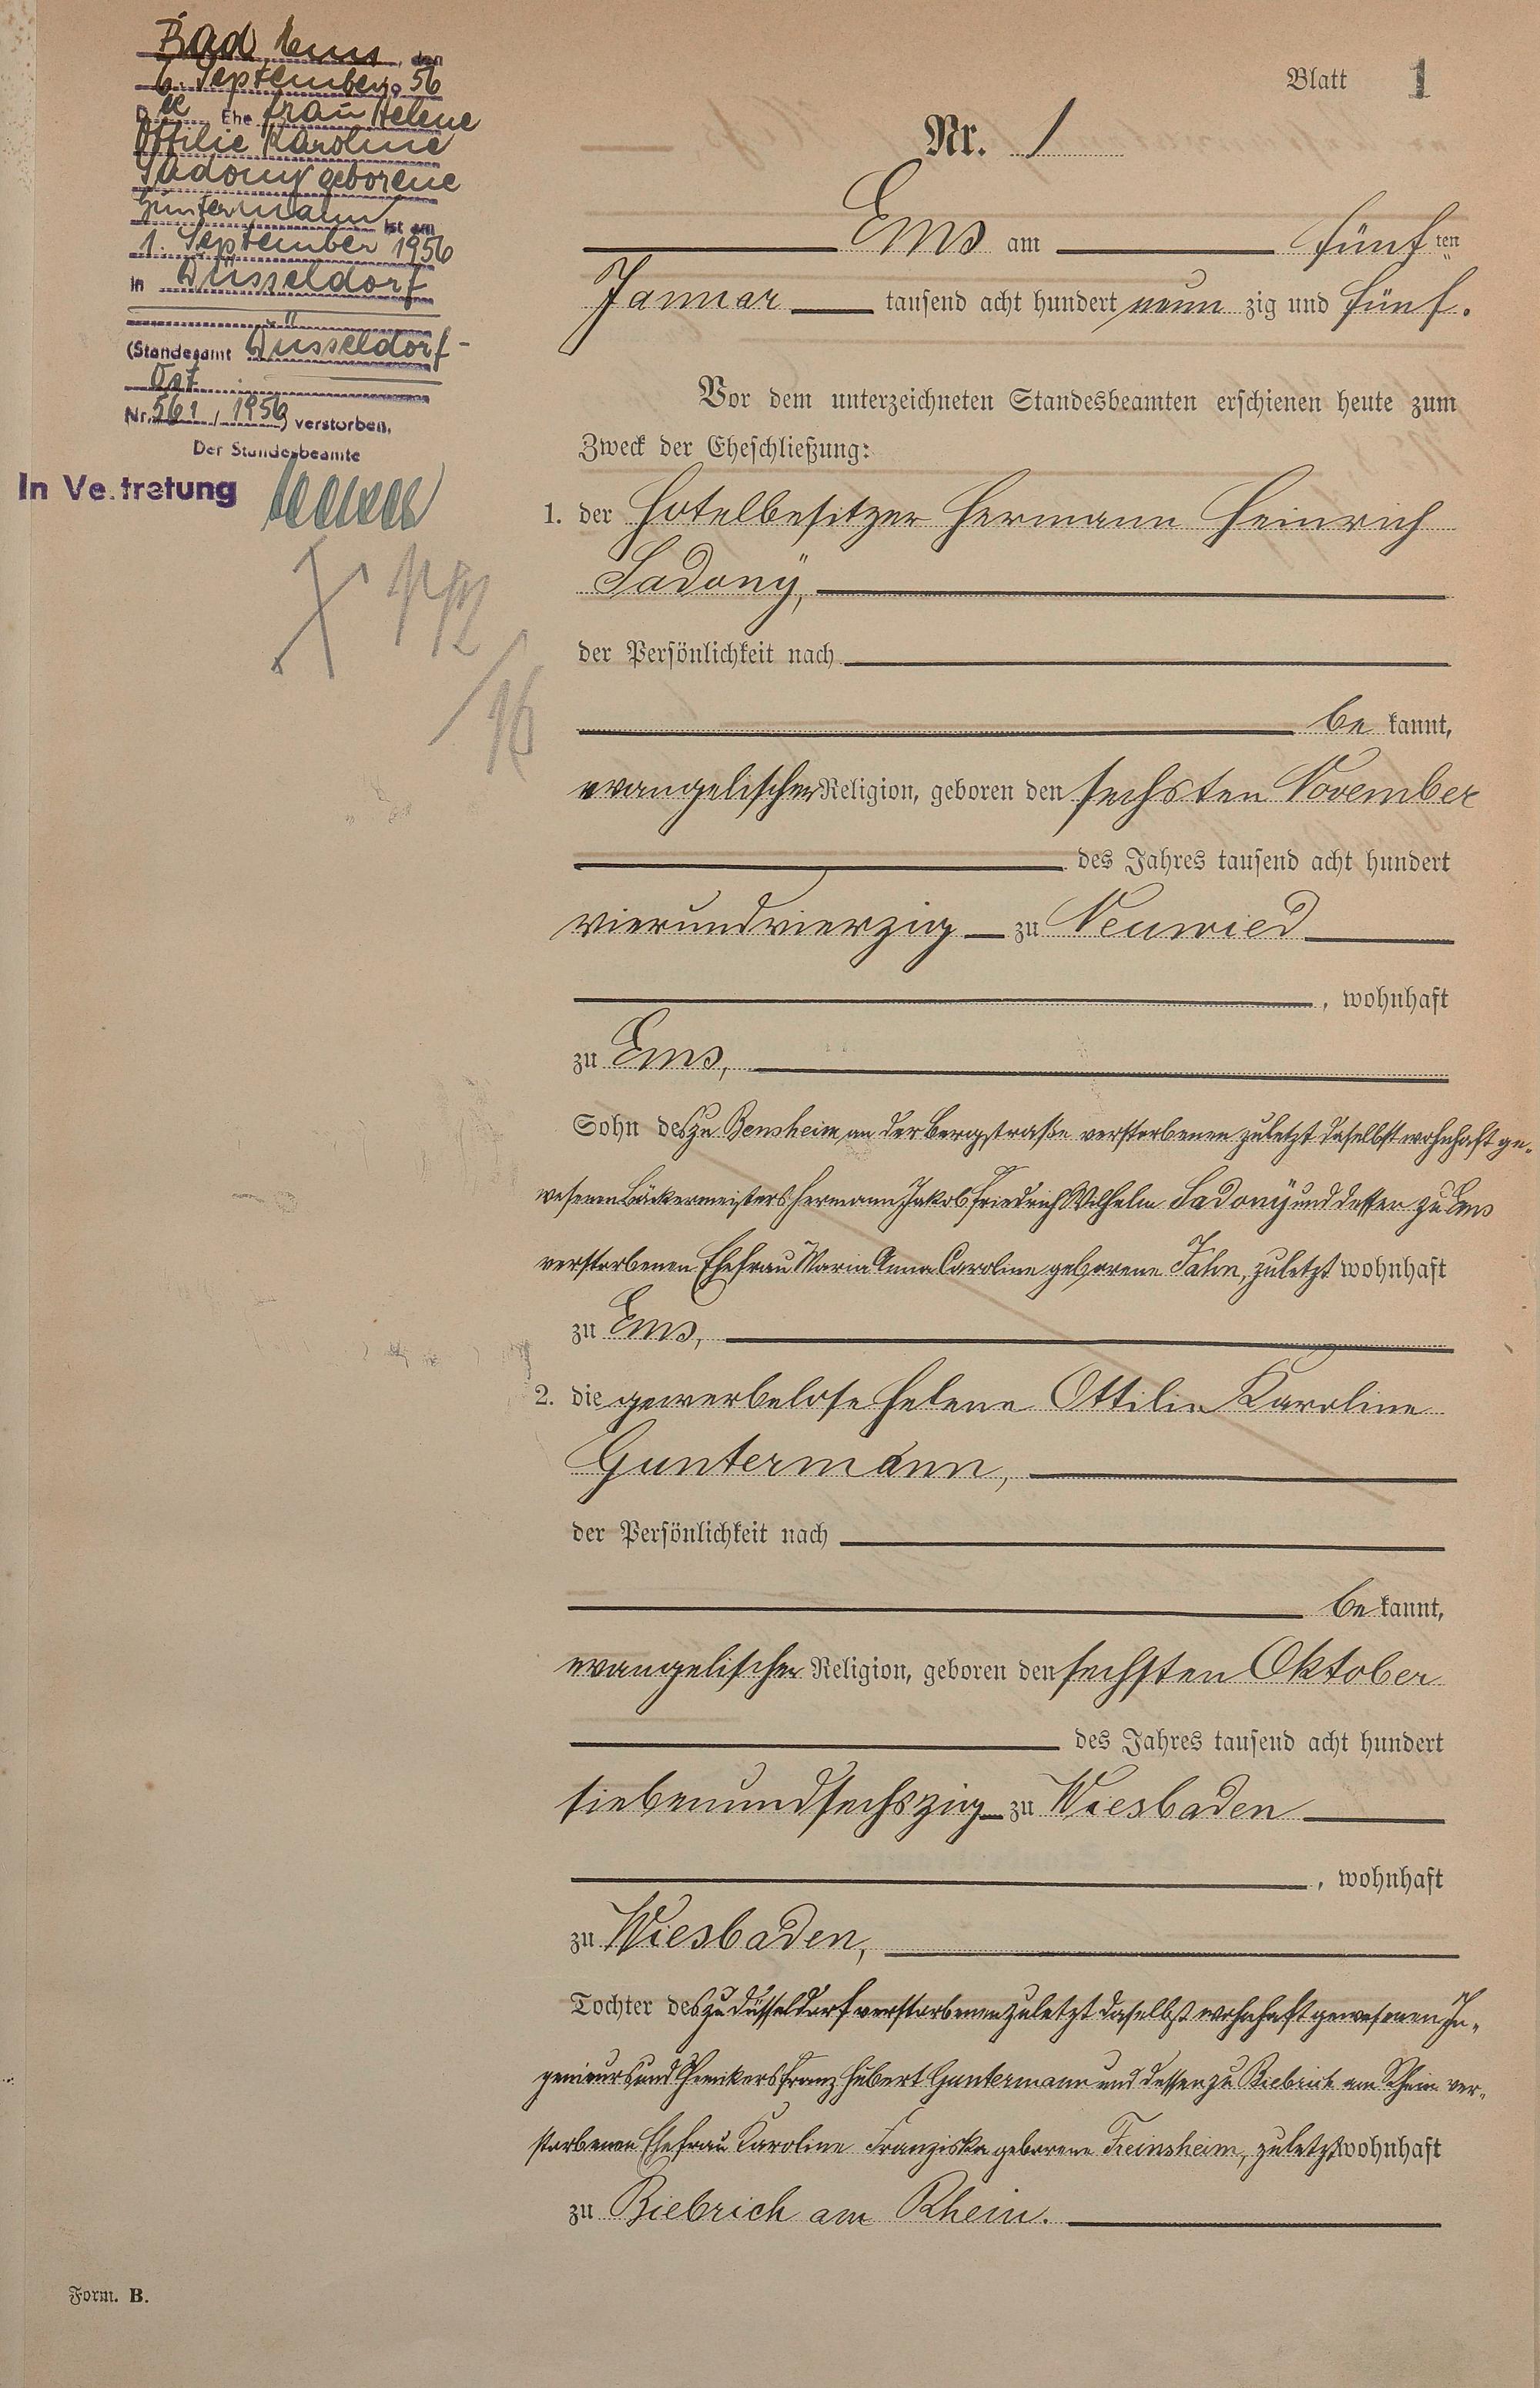 Bad Ems, den
6. September 1956
Die Ehefrau Helene
Ottilie Karoline
Sadony geborene
Guntermann ist am
1. September 1956
in Düsseldorf
(Standesamt Düsseldorf-
Ost
Nr. 561/1956) verstorben.
Der Standesbeamte
In Vertretung
Blatt 1
Nr. 1
Ems am fünften
Januar tausend acht hundert neunzig und fünf.
Vor dem unterzeichneten Standesbeamten erschienen heute zum
Zweck der Eheschließung:
1. der Hotelbesitzer Hermann Heinrich
Sadonÿ,
der Persönlichkeit nach
bekannt,
evangelischer Religion, geboren den sechsten November
des Jahres tausend acht hundert
vierundvierzig zu Neuwied
, wohnhaft
zu Ems,
Sohn des zu Bensheim an der Bergstraße verstorbenen zuletzt daselbst wohnhaft ge-
wesenen Bäckermeisters Hermann Jakob Friedrich Wilhelm Sadonÿ und dessen zu Ems
verstorbenen Ehefrau Maria Anna Caroline geborene Jahn, zuletzt wohnhaft
zu Ems,
2. die gewerbelose Helene Ottilie Karoline
Guntermann,
der Persönlichkeit nach
bekannt,
evangelischer Religion, geboren den sechsten Oktober
des Jahres tausend acht hundert
siebenundsechszig zu Wiesbaden
, wohnhaft
zu Wiesbaden,
Tochter des zu Düsseldorf verstorbenen zuletzt daselbst wohnhaft gewesenen In-
genieurs und Chemikers Franz Hubert Guntermann und dessen zu Biebrich am Rhein ver-
storbenen Ehefrau Karoline Franziska geborene Freinsheim, zuletzt wohnhaft
zu Biebrich am Rhein.
Form. B.